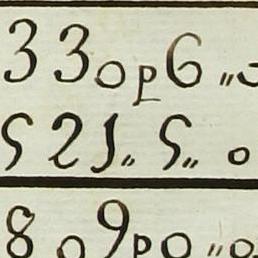 33op6 〃o
521〃 5〃 o
8o9po〃o